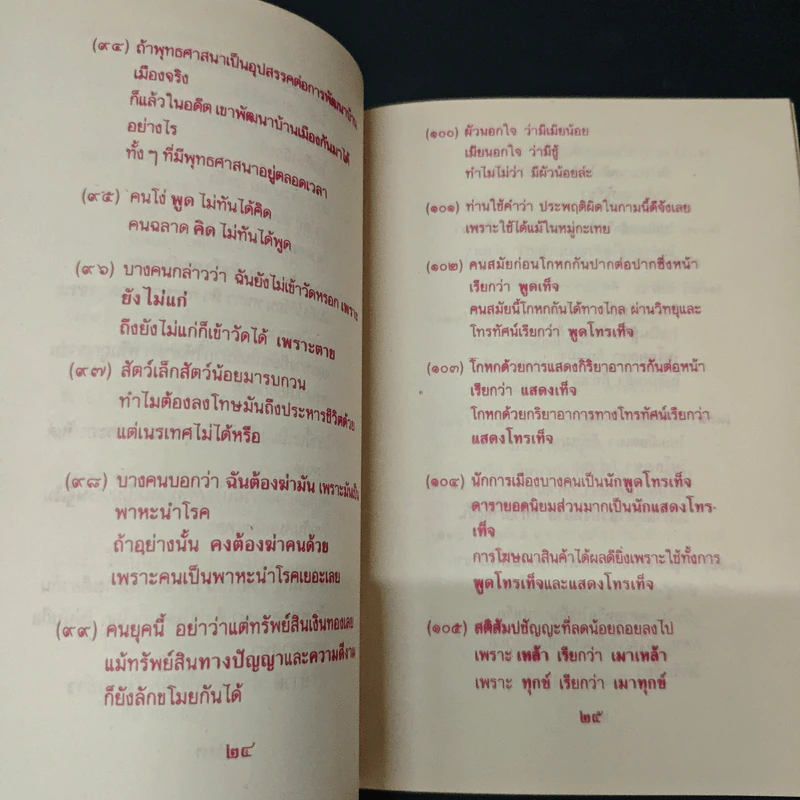 (๙๔) ถ้าพุทธศาสนาเป็นอุปสรรคต่อการพัฒนาบ้าน
เมืองจริง
ก็แล้วในอดีต เขาพัฒนาบ้านเมืองกันมาได้
อย่างไร
ทั้ง ๆ ที่มีพุทธศาสนาอยู่ตลอดเวลา
(๙๕) คนโง่ พูด ไม่ทันได้คิด
คนฉลาด คิด ไม่ทันได้พูด
(๙๖) บางคนกล่าวว่า ฉันยังไม่เข้าวัดหรอก เพราะ
ยังไม่แก่
ถึงยังไม่แก่ก็เข้าวัดได้ เพราะตาย
(๙๗) สัตว์เล็กสัตว์น้อยมารบกวน
ทำไมต้องลงโทษมันถึงประหารชีวิตด้วย
แต่เนรเทศไม่ได้หรือ
(๙๘) บางคนบอกว่า ฉันต้องฆ่ามัน เพราะมันเป็น
พาหะนำโรค
ถ้าอย่างนั้น คงต้องฆ่าคนด้วย
เพราะคนเป็นพาหะนำโรคเยอะเลย
(๙๙) คนยุคนี้ อย่าว่าแต่ทรัพย์สินเงินทองเลย
แม้ทรัพย์สินทางปัญญาและความดีงาม
ก็ยังลักขโมยกันได้
๒๔
(๑๐๐) ผัวนอกใจ ว่ามีเมียน้อย
เมียนอกใจ ว่ามีชู้
ทำไมไม่ว่า มีผัวน้อยล่ะ
(๑๐๑) ท่านใช้คำว่า ประพฤติผิดในกามนี้ดีจังเลย
เพราะใช้ได้แม้ในหมู่กะเทย
(๑๐๒) คนสมัยก่อนโกหกกันปากต่อปากซึ่งหน้า
เรียกว่า พูดเท็จ
คนสมัยนี้โกหกกันได้ทางไกล ผ่านวิทยุและ
โทรทัศน์เรียกว่า พูดโทรเท็จ
(๑๐๓) โกหกด้วยการแสดงกิริยาอาการกันต่อหน้า
เรียกว่า แสดงเท็จ
โกหกด้วยกริยาอาการทางโทรทัศน์เรียกว่า
แสดงโทรเท็จ
(๑๐๔) นักการเมืองบางคนเป็นนักพูดโทรเท็จ
ดารายอดนิยมส่วนมากเป็นนักแสดงโทร-
เท็จ
การโฆษณาสินค้าได้ผลดียิ่งเพราะใช้ทั้งการ
พูดโทรเท็จและแสดงโทรเท็จ
(๑๐๕) สติสัมปชัญญะที่ลดน้อยถอยลงไป
เพราะ เหล้า เรียกว่า เมาเหล้า
เพราะ ทุกข์ เรียกว่า เมาทุกข์
๒๕